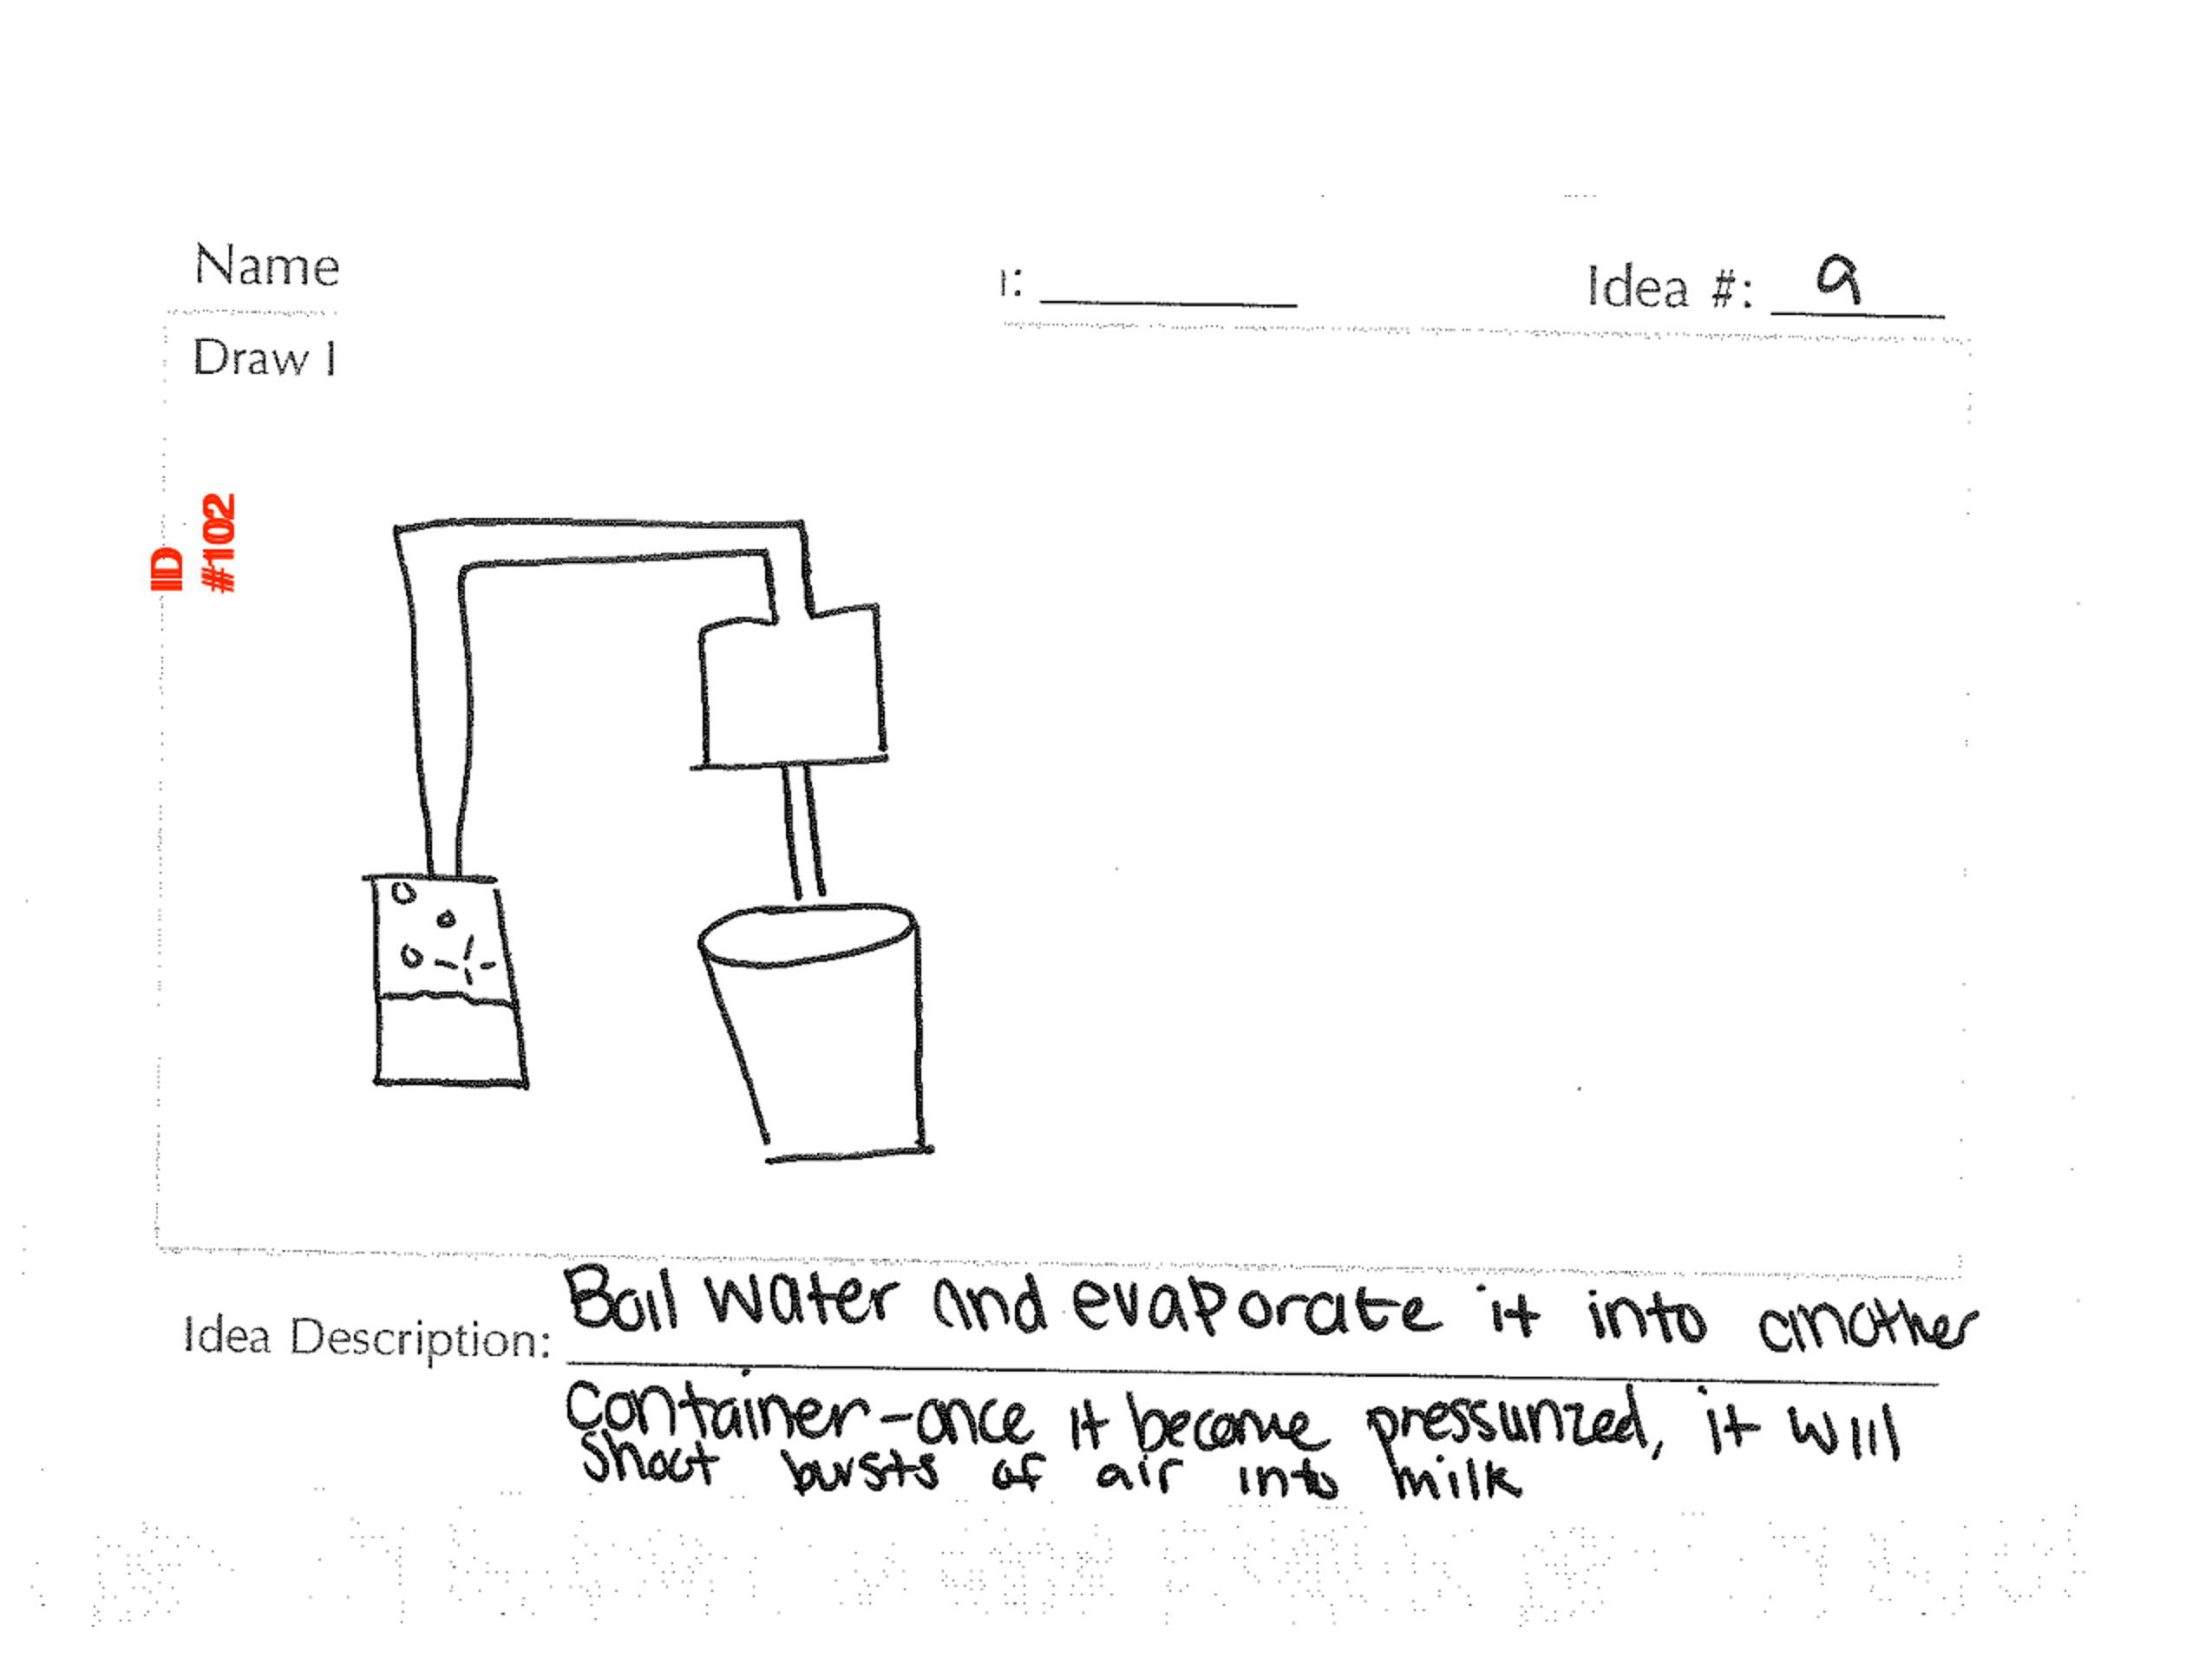 Name
ı: Idea #: 9
Draw I
ID
#102
Idea Description: Boil water and evaporate it into another
container - once it become pressurized, it will
shoot bursts of air into milk